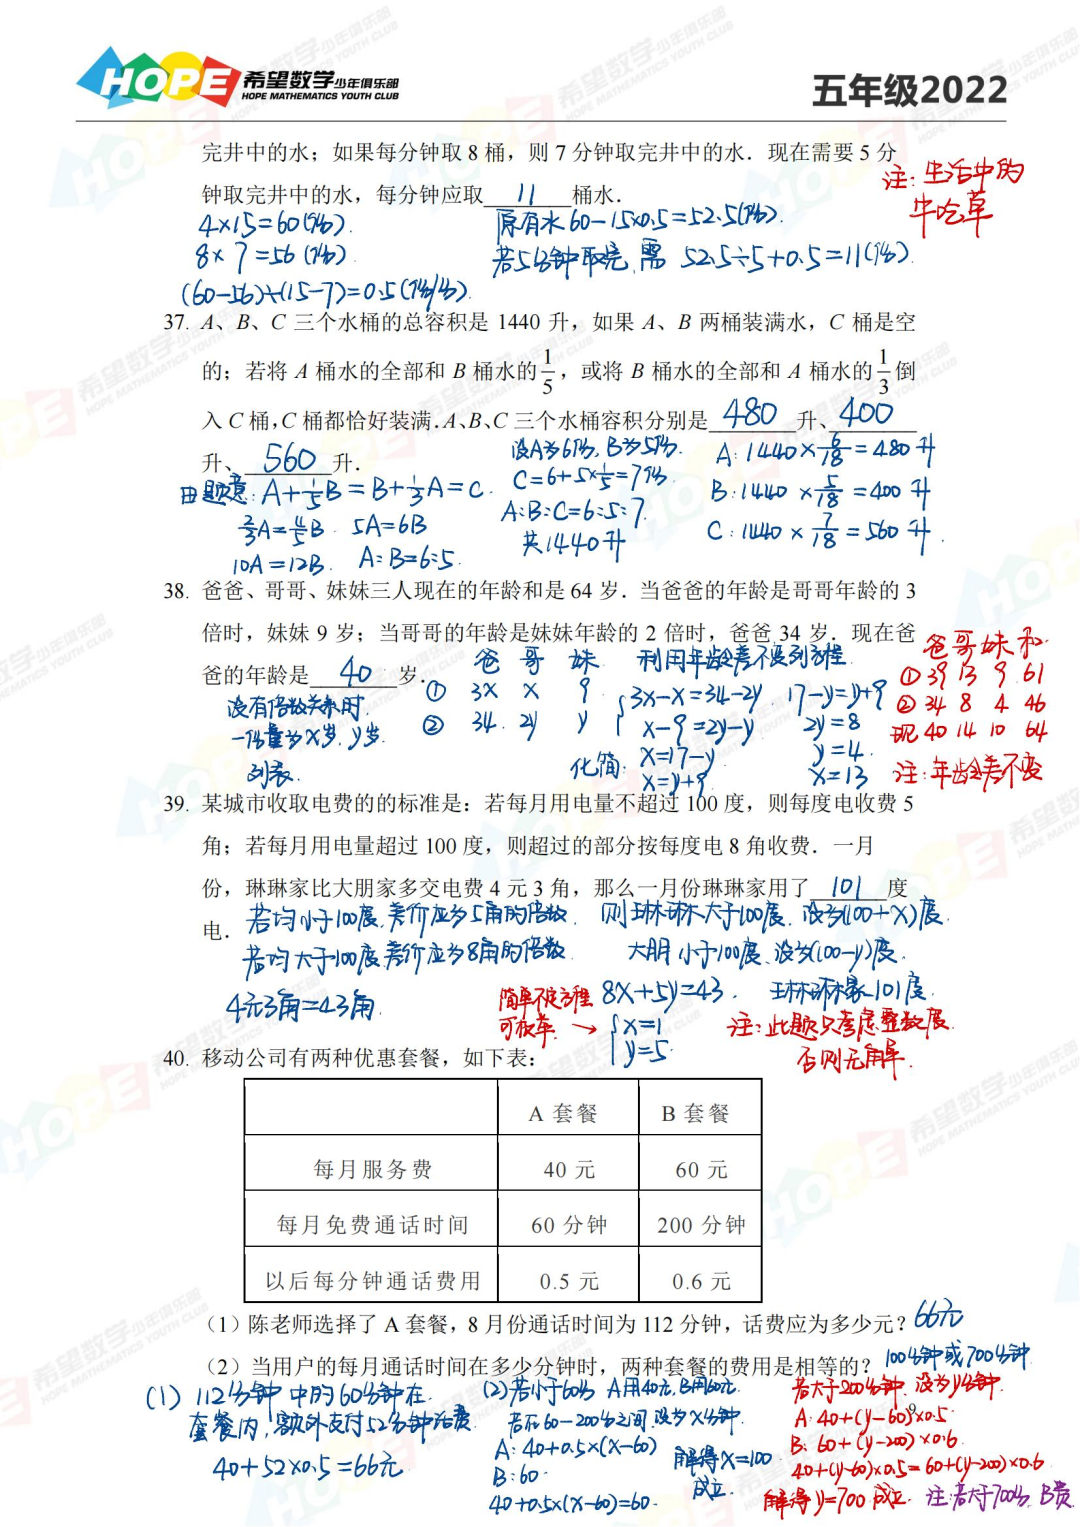 HOPE 希望数学少年俱乐部
HOPE MATHEMATICS YOUTH CLUB
五年级2022
完井中的水；如果每分钟取 8 桶，则 7 分钟取完井中的水．现在需要 5 分
钟取完井中的水，每分钟应取 11 桶水．
注：生活中的
牛吃草
4×15=60(份)．
原有水 60-15×0.5=52.5(份)．
8×7=56 (份)
若5分钟取完, 需 52.5÷5+0.5=11(份)．
(60-56)÷(15-7)=0.5(份/分)．
37. A、B、C 三个水桶的总容积是 1440 升，如果 A、B 两桶装满水，C 桶是空
的；若将 A 桶水的全部和 B 桶水的 1/5，或将 B 桶水的全部和 A 桶水的 1/3 倒
入 C 桶，C 桶都恰好装满．A、B、C 三个水桶容积分别是 480 升、400
升、560 升．
设A为6份, B为5份.
A: 1440×6/18=480升
由题意: A+1/5B=B+1/3A=C.
C=6+5×1/5=7份
B: 1440×5/18=400升
2/3A=4/5B 5A=6B
A:B:C=6:5:7.
C: 1440×7/18=560升.
10A=12B. A:B=6:5.
共1440升
38. 爸爸、哥哥、妹妹三人现在的年龄和是 64 岁．当爸爸的年龄是哥哥年龄的 3
倍时，妹妹 9 岁；当哥哥的年龄是妹妹年龄的 2 倍时，爸爸 34 岁．现在爸
爸的年龄是 40 岁．
爸 哥 妹 利用年龄差不变列方程
爸 哥 妹 和
① 3X X 9
3X-X=34-2y 17-y=y+9
① 39 13 9 61
没有倍数关系时.
② 34. 2y y
X-9=2y-y 2y=8
② 34 8 4 46
一份量为X岁, y岁.
化简: X=17-y y=4.
现 40 14 10 64
列表.
X=y+9 X=13
注:年龄差不变
39. 某城市收取电费的的标准是：若每月用电量不超过 100 度，则每度电收费 5
角；若每月用电量超过 100 度，则超过的部分按每度电 8 角收费．一月
份，琳琳家比大朋家多交电费 4 元 3 角，那么一月份琳琳家用了 101 度
电．
若均小于100度, 差价应为5角的倍数. 则琳琳大于100度. 设为(100+X)度.
若均大于100度, 差价应为8角的倍数. 大朋小于100度、设为(100-y)度.
4元3角=43角.
简单不定方程
8X+5y=43. 琳琳家101度.
→ X=1
y=5.
注:此题只考虑整数度.
否则无解.
40. 移动公司有两种优惠套餐，如下表：
A 套餐 B 套餐
每月服务费 40 元 60 元
每月免费通话时间 60 分钟 200 分钟
以后每分钟通话费用 0.5 元 0.6 元
（1）陈老师选择了 A 套餐，8 月份通话时间为 112 分钟，话费应为多少元？ 66元
（2）当用户的每月通话时间在多少分钟时，两种套餐的费用是相等的？ 100分钟或700分钟.
9
(1) 112分钟中的60分钟在
套餐内, 额外支付52分钟话费
40+52×0.5=66元
(2) 若小于60分 A用40元, B用60元.
若在60-200分之间, 设为X分钟.
A: 40+0.5×(X-60)
B: 60.
40+0.5×(X-60)=60.
解得X=100
成立.
若大于200分钟. 设为y分钟.
A: 40+(y-60)×0.5
B: 60+(y-200)×0.6
40+(y-60)×0.5=60+(y-200)×0.6
解得y=700 成立. 注:若大于700分, B贵